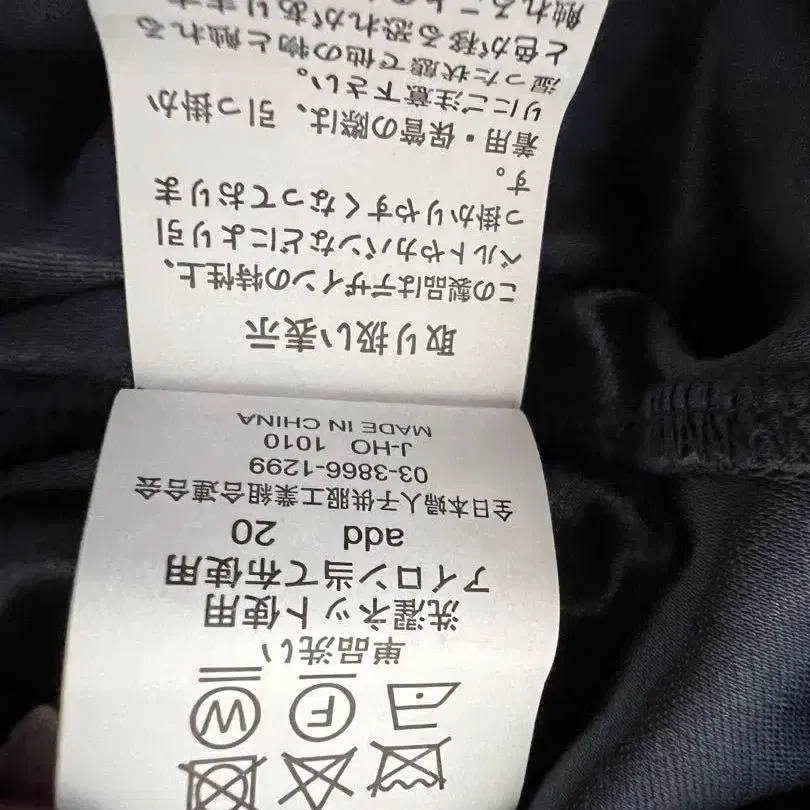 F W
単品洗い
洗濯ネット使用
アイロン当て布使用
add 20
全日本婦人子供服工業組合連合会
03-3866-1299
J-HO 1010
MADE IN CHINA
取り扱い表示
この製品はデザインの特性上、
ベルトやカバンなどにより引
っ掛かりやすくなっておりま
す。
着用・保管の際は、引っ掛か
りにご注意下さい。
湿った状態で他の物と触れる
と色が移る恐れがあります
触れること